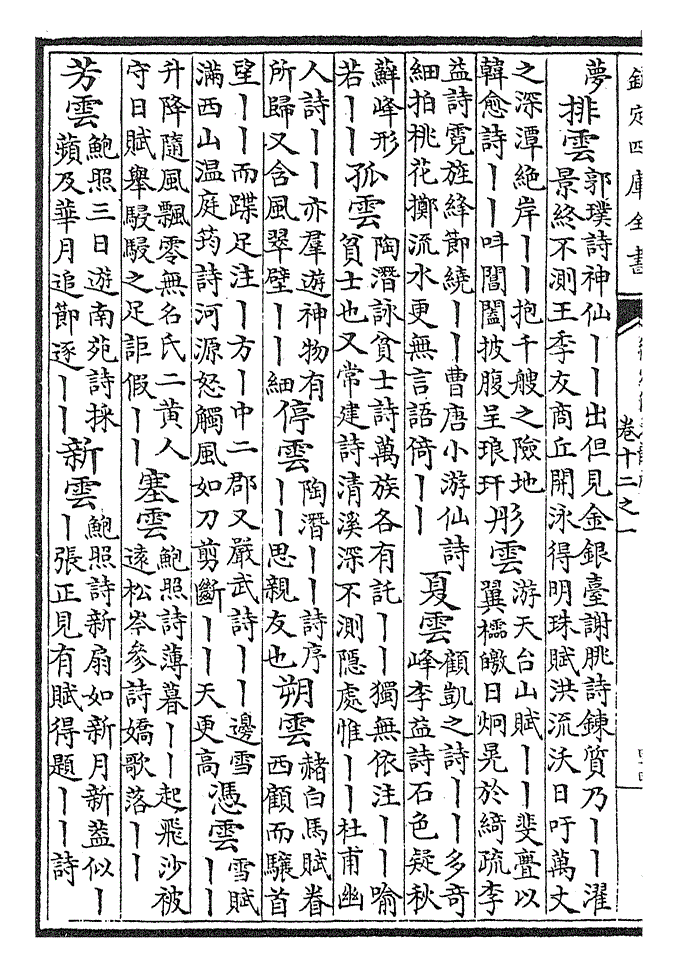 欽定四庫全書
卷十二之一
夢
排雲
郭璞詩神仙丨丨出但見金銀臺謝朓詩鍊質乃丨丨濯
景終不測王季友商丘開泳得明珠賦洪流沃日吁萬丈
之深潭絕岸丨丨抱千艘之險地
韓愈詩丨丨呌閶闔披腹呈琅玕
彤雲
游天台山賦丨丨斐亹以
翼櫺皦日炯晃於綺疏李
益詩霓旌絳節繞丨丨曹唐小游仙詩
細拍桃花擲流水更無言語倚丨丨
夏雲
顧凱之詩丨丨多奇
峰李益詩石色疑秋
蘚峰形
若丨丨
孤雲
陶潛詠貧士詩萬族各有託丨丨獨無依注丨丨喻
貧士也又常建詩清溪深不測隱處惟丨丨杜甫幽
人詩丨丨亦羣遊神物有
所歸又含風翠壁丨丨細
停雲
陶潛丨丨詩序
丨丨思親友也
朔雲
赭白馬賦眷
西顧而驤首
朢丨丨而蹀足注丨方丨中二郡又嚴武詩丨丨邊雪
滿西山温庭筠詩河源怒觸風如刀剪斷丨丨天更高
憑雲
雪賦
丨丨
升降隨風飄零無名氏二黃人
守日賦舉駸駸之足詎假丨丨
塞雲
鮑照詩薄暮丨丨起飛沙被
遠松岑參詩嬌歌落丨丨
芳雲
鮑照三日遊南苑詩採
蘋及華月追節逐丨丨
新雲
鮑照詩新扇如新月新蓋似丨
丨張正見有賦得題丨丨詩